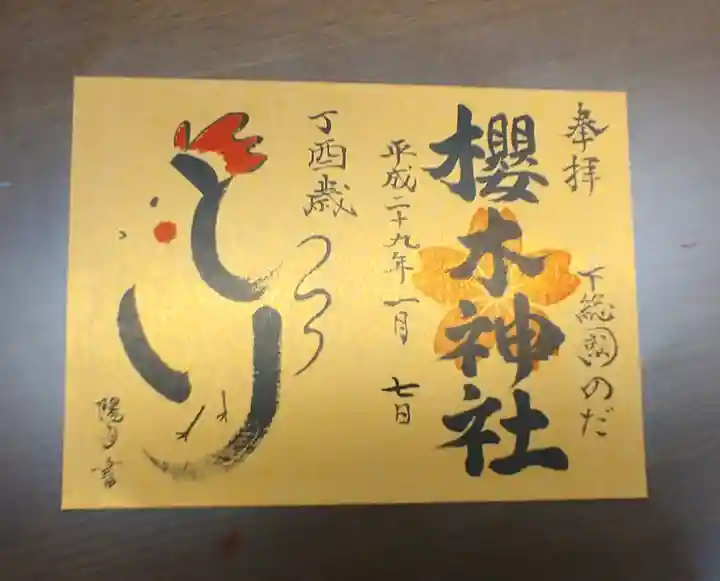 奉拝
下総国のだ
櫻木神社
平成二十九年一月七日
丁酉歳
とり